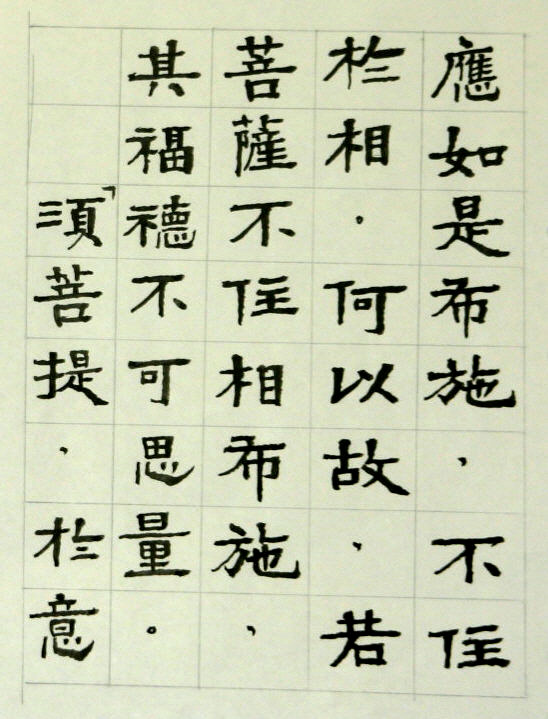 應如是布施，不住
於相，何以故，若
菩薩不住相布施，
其福德不可思量。
「須菩提，於意